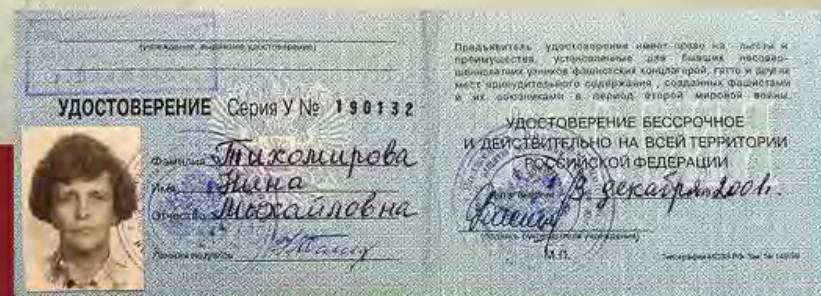 (учреждение, выдавшее удостоверение)
УДОСТОВЕРЕНИЕ Серия У № 190132
Фамилия Тихомирова
Имя Нина
Отчество Михайловна
Личная подпись
Предъявитель удостоверения имеет право на льготы и
преимущества, установленные для бывших несовер-
шеннолетних узников фашистских концлагерей, гетто и других
мест принудительного содержания, созданных фашистами
и их союзниками в период второй мировой войны.
УДОСТОВЕРЕНИЕ БЕССРОЧНОЕ
И ДЕЙСТВИТЕЛЬНО НА ВСЕЙ ТЕРРИТОРИИ
РОССИЙСКОЙ ФЕДЕРАЦИИ
Дата выдачи 13 декабря 2001г.
М.П.